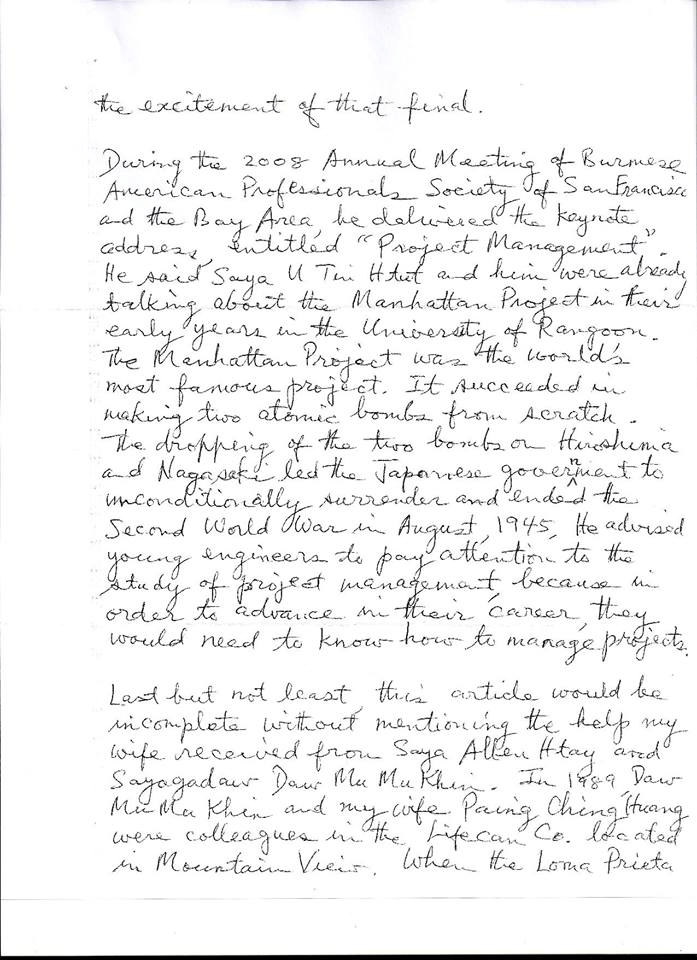 the excitement of that final.
During the 2008 Annual Meeting of Burmese
American Professionals Society of San Francisco
and the Bay Area, he delivered the keynote
address, entitled "Project Management".
He said Saya U Tin Htut and him were already
talking about the Manhattan Project in their
early years in the University of Rangoon.
The Manhattan Project was the world's
most famous project. It succeeded in
making two atomic bombs from scratch.
The dropping of the two bombs on Hiroshima
and Nagasaki led the Japanese government to
unconditionally surrender and ended the
Second World War in August, 1945. He advised
young engineers to pay attention to the
study of project management, because in
order to advance in their career, they
would need to know how to manage projects.
Last but not least, this article would be
incomplete without mentioning the help my
wife received from Saya Allen Htay and
Sayagadaw Daw Mu Mu Khin. In 1989, Daw
Mu Mu Khin and my wife Paing Ching Huang
were colleagues in the Lifecan Co. located
in Mountain View. When the Loma Prieta